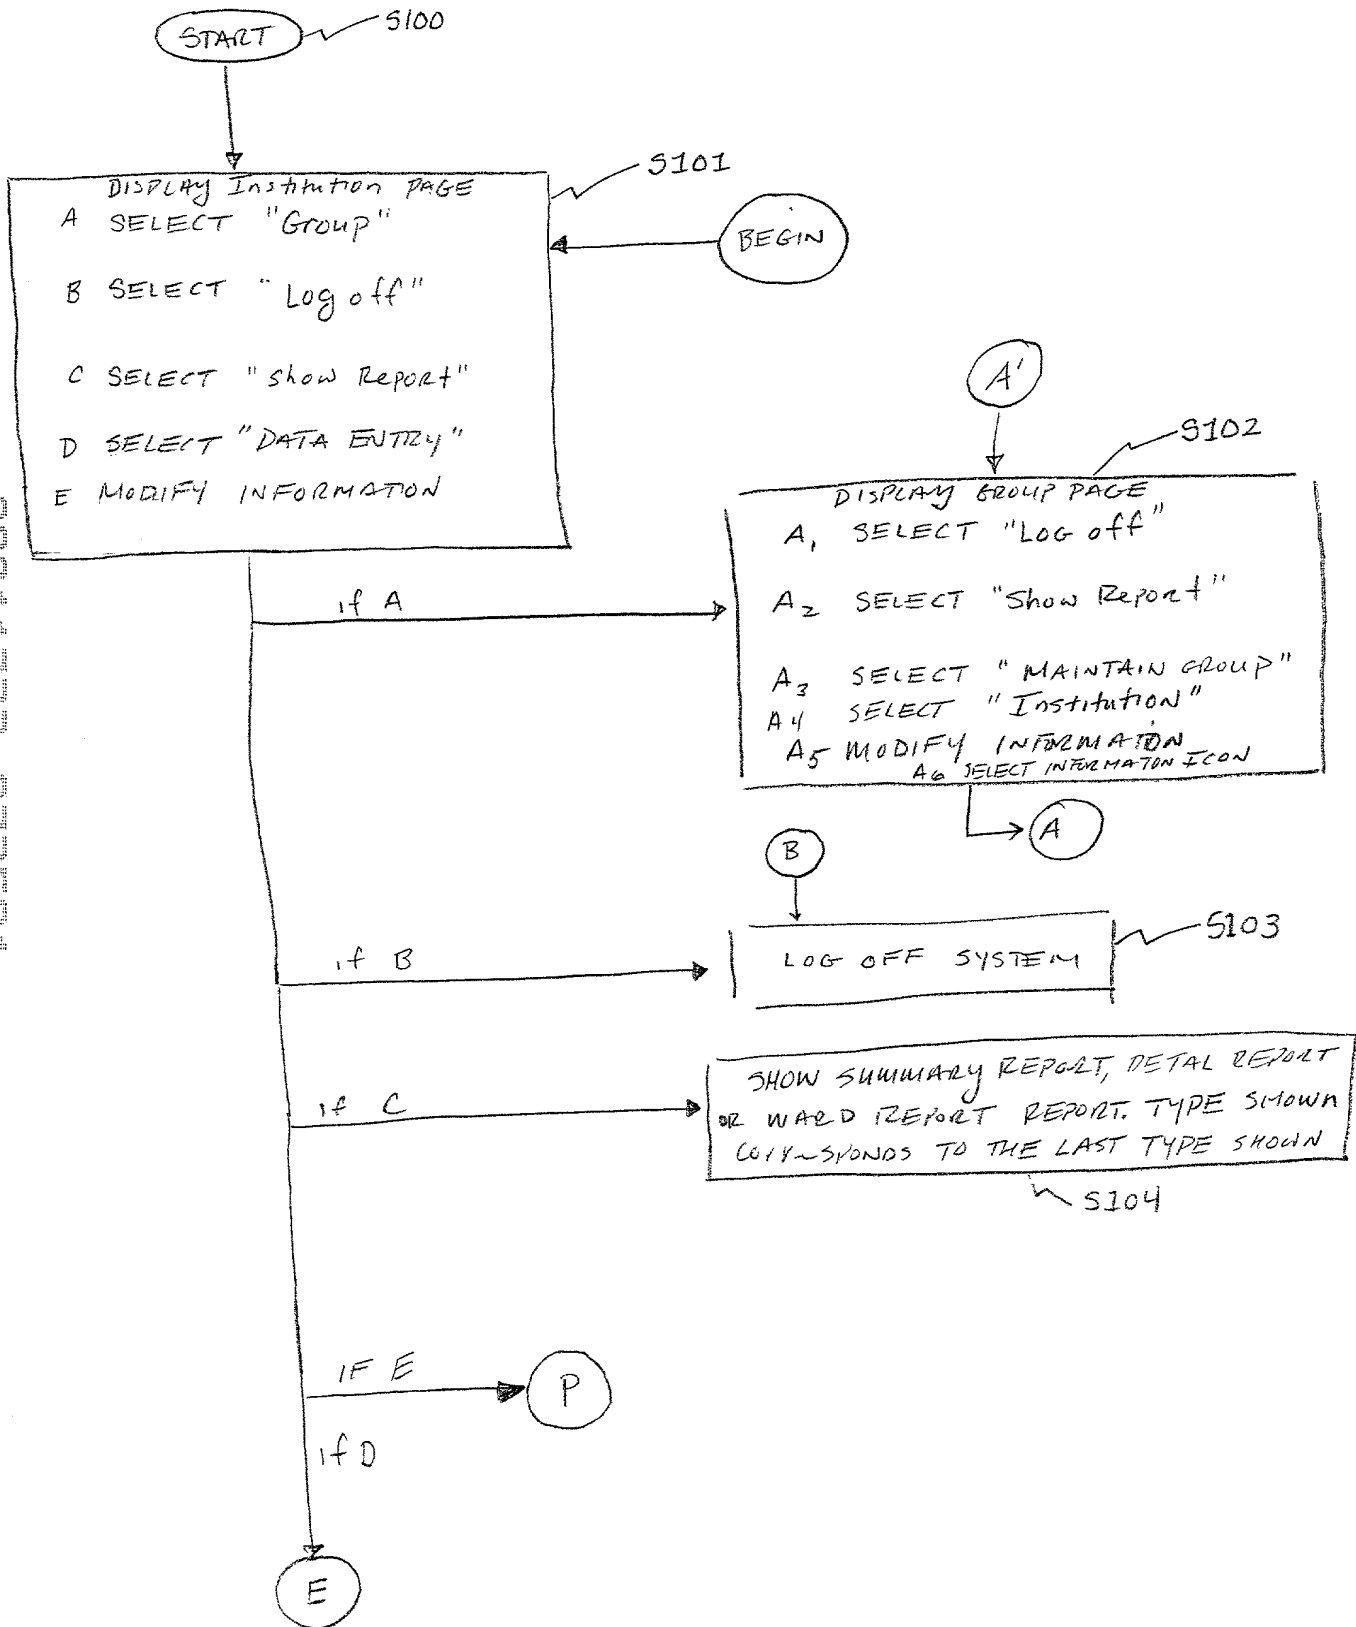 START
S100
S101
DISPLAY Institution PAGE
A SELECT "Group"
B SELECT "Log off"
C SELECT "show Report"
D SELECT "DATA ENTRY"
E MODIFY INFORMATION
BEGIN
A'
S102
DISPLAY GROUP PAGE
A1 SELECT "LOG off"
A2 SELECT "Show Report"
A3 SELECT "MAINTAIN GROUP"
A4 SELECT "Institution"
A5 MODIFY INFORMATON
A6 SELECT INFORMATON ICON
if A
A
B
S103
if B
LOG OFF SYSTEM
if C
SHOW SUMMARY REPORT, DETAL REPORT
OR WARD REPORT REPORT. TYPE SHOWN
TO THE LAST TYPE SHOWN
S104
IF E
P
if D
E